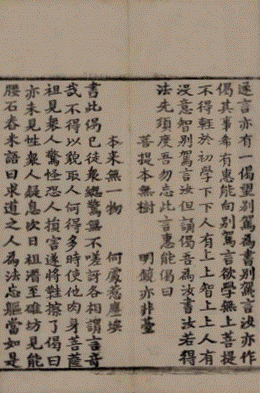 遂言亦有一偈望別駕為書別駕言汝亦作
偈其事希有惠能向別駕言欲學無上菩提
不得輕於初學下下人有上上智上上人有
沒意智別駕言汝但誦偈吾為汝書汝若得
法先須度吾勿忘此言惠能偈曰
菩提本無樹　明鏡亦非臺
本來無一物　何處惹塵埃
書此偈已徒眾總驚無不嗟訝各相謂言奇
哉不得以貌取人何得多時使他肉身菩薩
祖見眾人驚怪恐人損害遂將鞋擦了偈曰
亦未見性眾人疑息次日祖潛至碓坊見能
腰石舂米語曰求道之人為法忘軀當如是